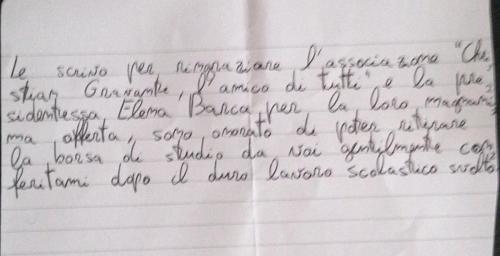 Le scrivo per ringraziare l'associazione "Chri
stian Granante, l'amico di tutti" e la pre
sidentessa Elena Barca per la loro magnani
ma offerta, sono onorato di poter ritirare
la borsa di studio da voi gentilmente con
feritami dopo il duro lavoro scolastico svolto